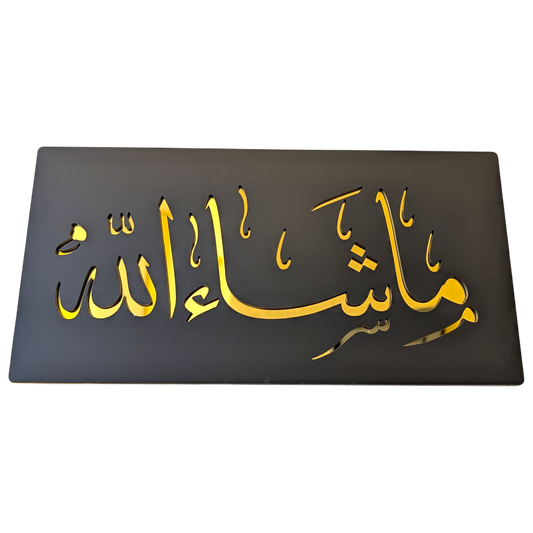 ما شاء اللّٰه